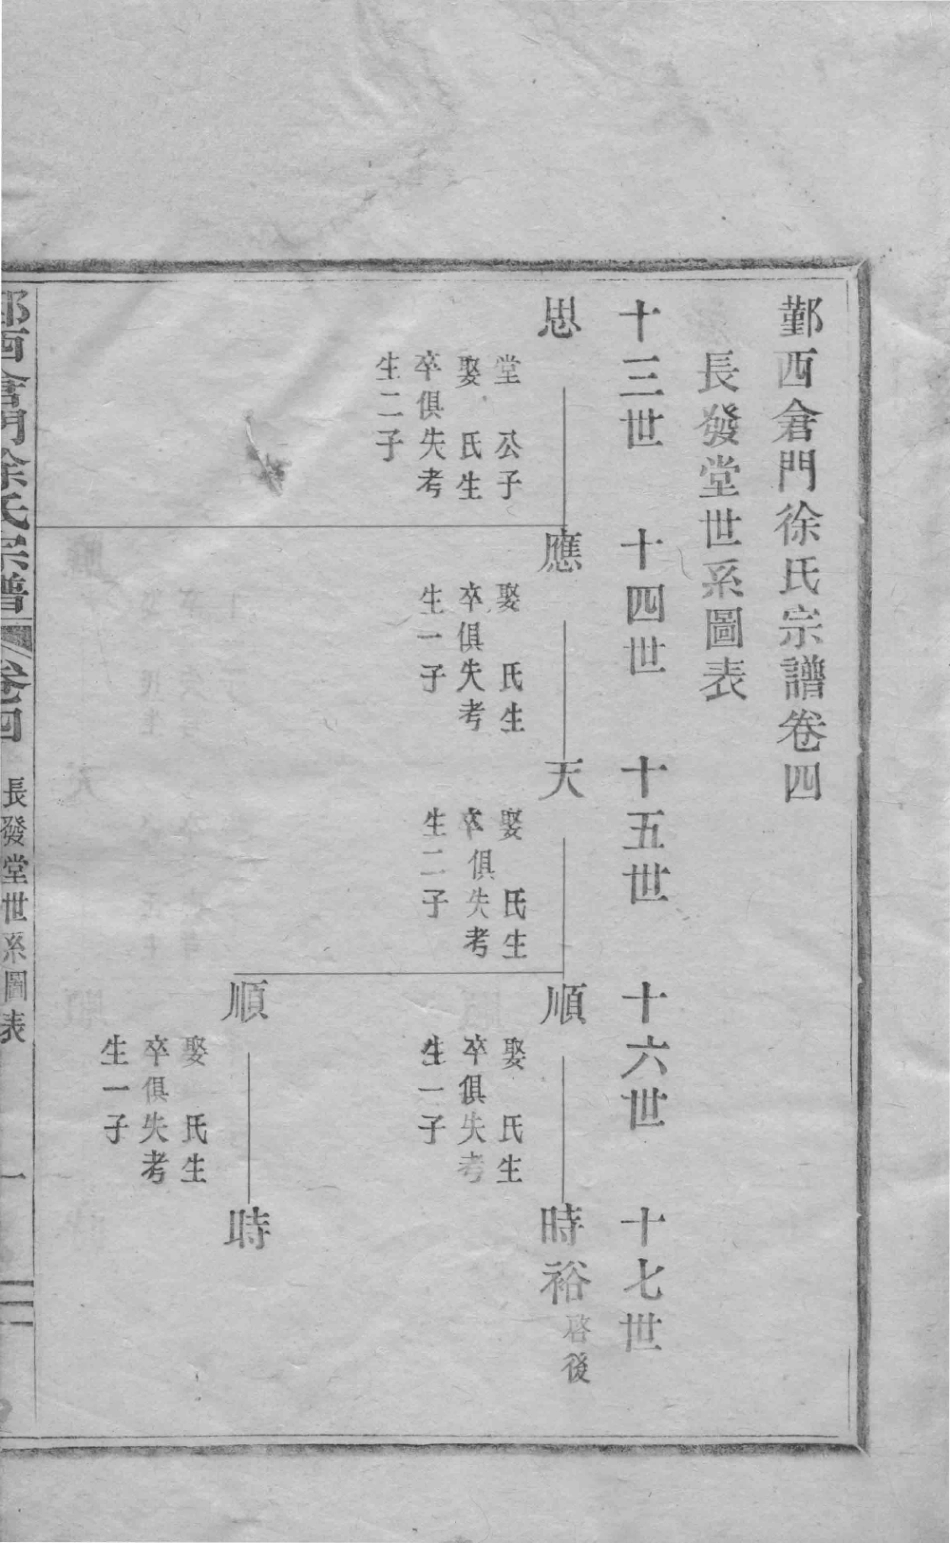 鄞西倉門徐氏宗譜卷四
長發堂世系圖表
十三世
十四世
十五世
十六世
十七世
思
堂　公子
娶　氏生
卒俱失考
生二子
應
娶　氏生
卒俱失考
生一子
天
娶　氏生
卒俱失考
生二子
順
娶　氏生
卒俱失考
生一子
時裕
啓後
順
娶　氏生
卒俱失考
生一子
時
鄞西倉門徐氏宗譜
卷四
長發堂世系圖表
一